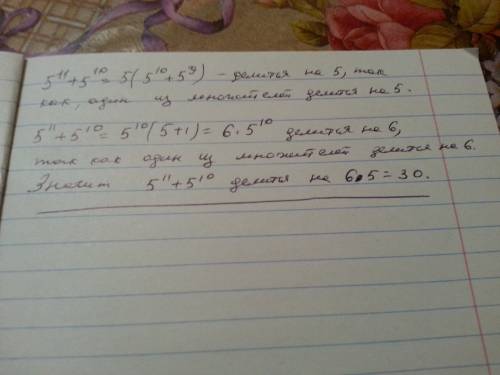 5¹¹+5¹⁰= 5(5¹⁰+5⁹) - делится на 5, так
как, один из множителей делится на 5.
5¹¹+5¹⁰= 5¹⁰(5+1) = 6·5¹⁰ делится на 6,
так как один из множителей делится на 6.
Значит 5¹¹+5¹⁰ делится на 6·5=30.